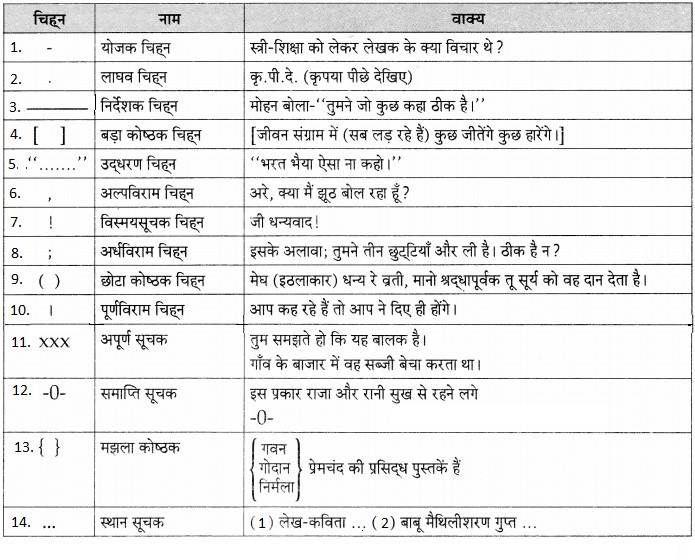 चिह्न नाम वाक्य
1. - योजक चिह्न स्त्री-शिक्षा को लेकर लेखक के क्या विचार थे ?
2. . लाघव चिह्न कृ.पी.दे. (कृपया पीछे देखिए)
3. ———— निर्देशक चिह्न मोहन बोला-‘‘तुमने जो कुछ कहा ठीक है।’’
4. [ ] बड़ा कोष्ठक चिह्न [जीवन संग्राम में (सब लड़ रहे हैं) कुछ जीतेंगे कुछ हारेंगे।]
5. .‘‘.......’’ उद्धरण चिह्न ‘‘भरत भैया ऐसा ना कहो।’’
6. , अल्पविराम चिह्न अरे, क्या मैं झूठ बोल रहा हूँ ?
7. ! विस्मयसूचक चिह्न जी धन्यवाद !
8. ; अर्धविराम चिह्न इसके अलावा; तुमने तीन छुट्टियाँ और ली है। ठीक है न ?
9. ( ) छोटा कोष्ठक चिह्न मेघ (इठलाकार) धन्य रे व्रती, मानो श्रद्धापूर्वक तू सूर्य को वह दान देता है।
10. । पूर्णविराम चिह्न आप कह रहे हैं तो आप ने दिए ही होंगे।
11. xxx अपूर्ण सूचक तुम समझते हो कि यह बालक है।
गाँव के बाजार में वह सब्जी बेचा करता था।
12. -0- समाप्ति सूचक इस प्रकार राजा और रानी सुख से रहने लगे
-0-
13. { } मझला कोष्ठक { गवन
गोदान
निर्मला } प्रेमचंद की प्रसिद्ध पुस्तकें हैं
14. ... स्थान सूचक (1) लेख-कविता ... (2) बाबू मैथिलीशरण गुप्त ...